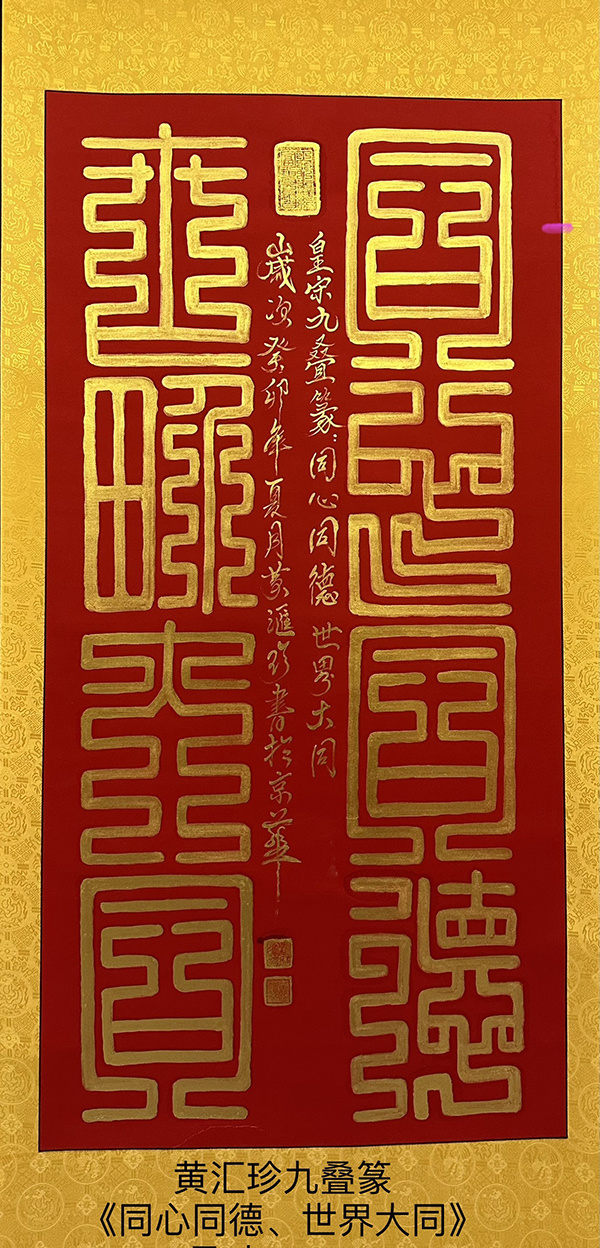 同心同德
世界大同
皇宋九叠篆：同心同德世界大同
岁次癸卯年夏月黄滙珍书於京华
黄汇珍九叠篆
《同心同德、世界大同》